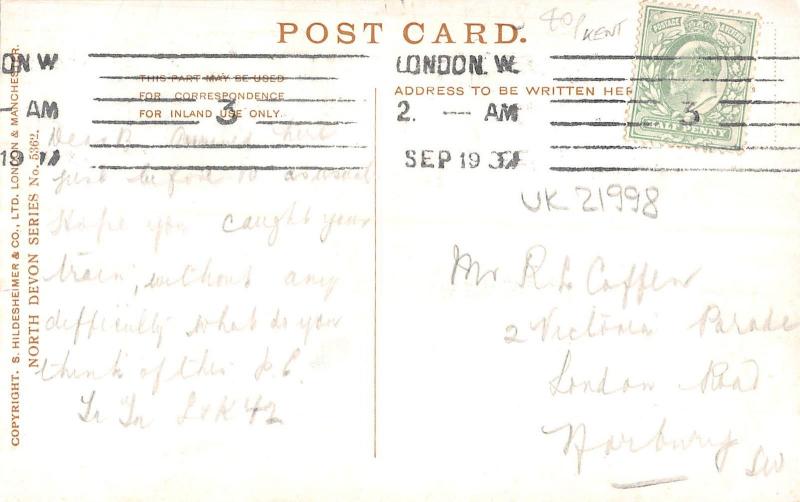 POST CARD.
40p
KENT
ON W
AM
19
3
LONDON. W.
2. — AM
SEP 19
3
THIS PART MAY BE USED
FOR CORRESPONDENCE
FOR INLAND USE ONLY.
ADDRESS TO BE WRITTEN HER
POSTAGE REVENUE
HALF PENNY
COPYRIGHT. S. HILDESHEIMER & CO., LTD. LONDON & MANCHESTER.
NORTH DEVON SERIES No. 5362.
Dear
just before 10 as usual
Hope you caught your
train, without any
difficulty what do you
think of this P.C.
42
UK 21998
Mr R
2 Victoria Parade
London Road
Norbury
SW